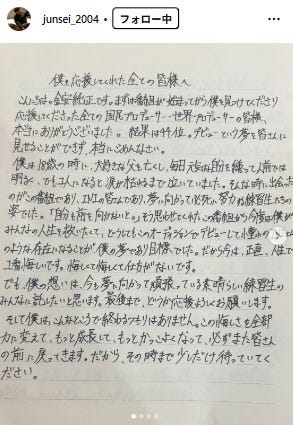 junsei_2004 • フォロー中
僕を応援してくれた全ての皆様へ
こんにちは。金安純正です。まずは番組が始まってから僕を見つけてくださり
応援してくださった全ての国民プロデューサー・世界プロデューサーの皆様、
本当にありがとうございました。結果は44位。デビューという夢を皆さんに
見せることができず、本当にごめんなさい。
僕は18歳の時に、大好きな父を亡くし、毎日元気な自分を繕って人前では
明るく、でも1人になると涙が枯れるまで泣いていました。そんな時に出会った
のがこの番組であり、INIの皆さんであり、夢に向かって必死に努力する練習生たちの
姿でした。「自分も前を向かないと。」そう思わせてくれたこの番組から今度は僕が
みんなの人生を救いたくて、どうしてもこのオーディションでデビューして憧れの
のような存在になることが僕の夢であり目標でした。だから今は、正直、人生で
1番悔しいです。悔しくて悔しくて仕方がないです。
でも、僕の想いは、今も夢に向かって頑張っている素晴らしい練習生の
みんなに託したいと思います。最後まで、どうか応援よろしくお願いします。
そして僕は、こんなところで終わるつもりはありません。この悔しさを全部
力に変えて、もっと成長して、もっとかっこよくなって、必ずまた皆さん
の前に戻ってきます。だから、その時まで少しだけ待っていてく
ださい。